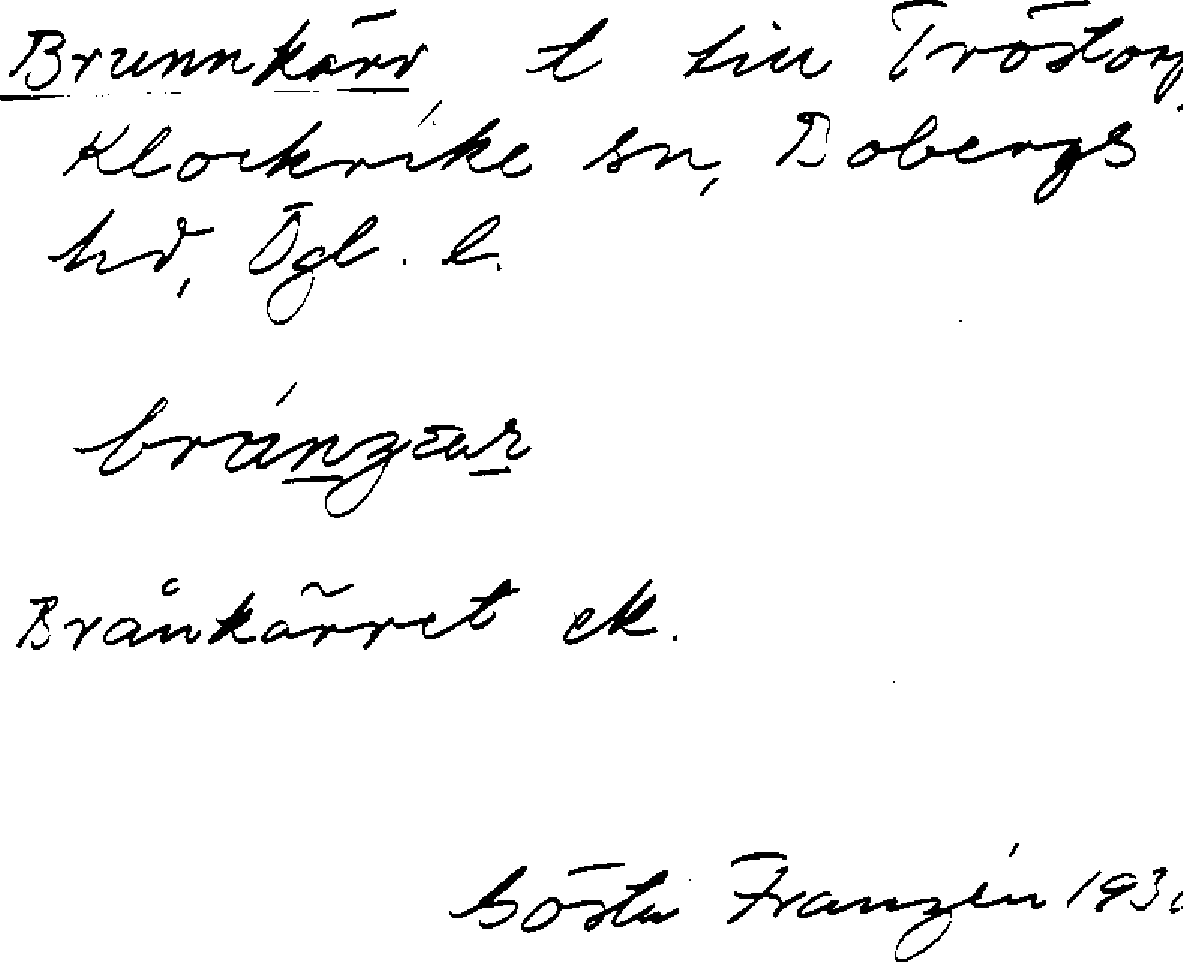 Brunnkärr t till Tröstorp,
Klockrike sn, Bobergs
hd, Ögl. l.
Brånkärret ek.
Gösta Franzén